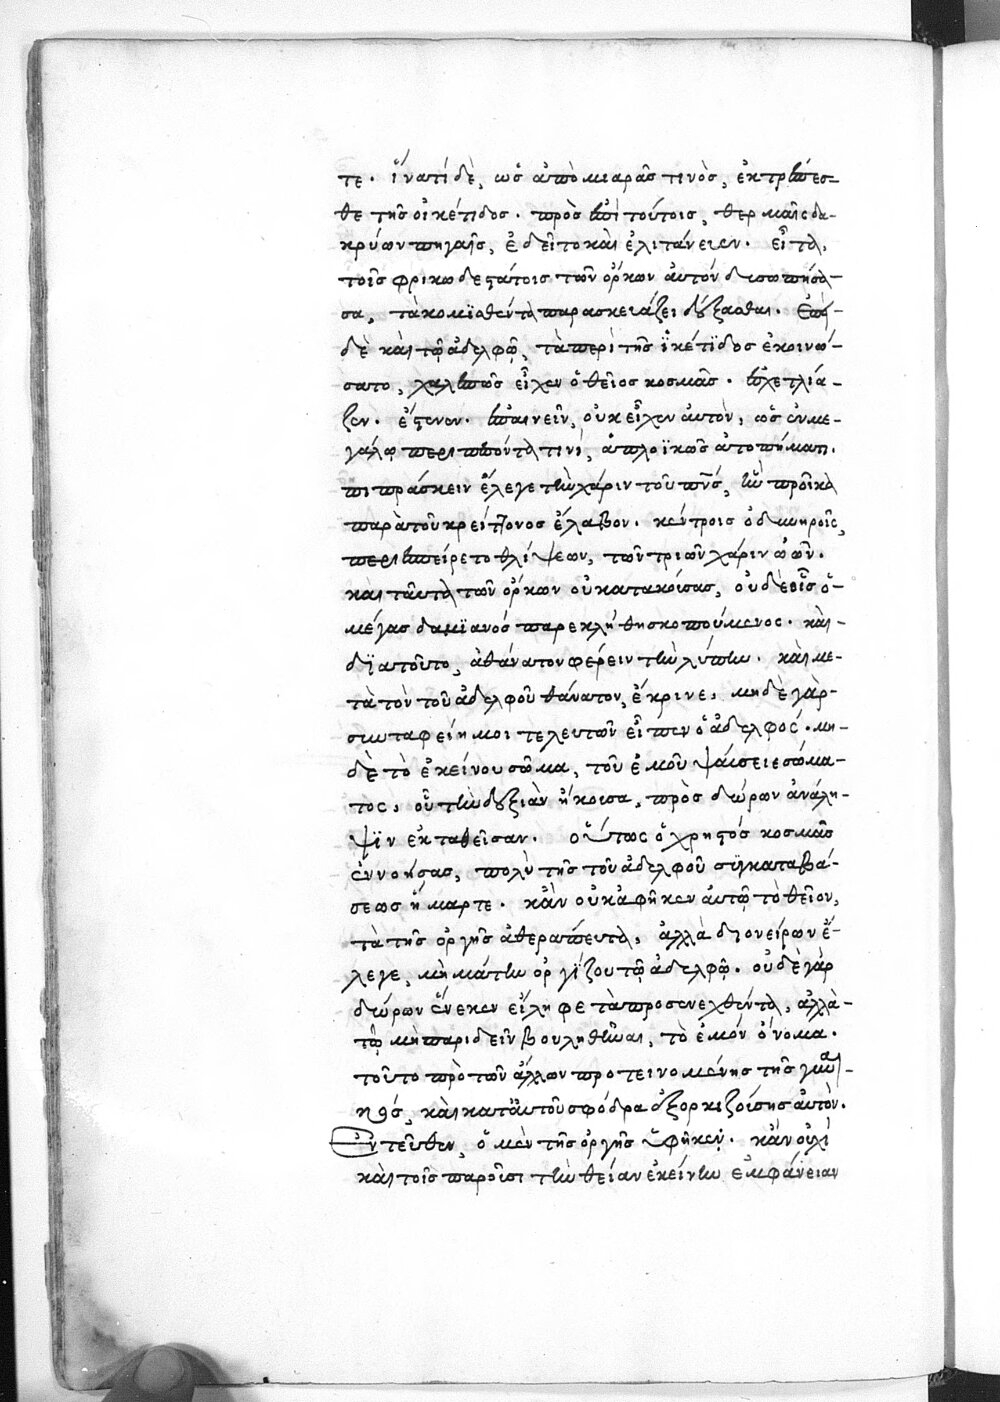 τε. ἵνατί δὲ, ὡς ἀπὸ μιαρᾶς τινὸς, ἐκτρέπεσ-
θε τῆς οἰκέτιδος. πρὸς ἐπὶ τούτοις, θερμαῖς δα-
κρύων πηγαῖς, ἐδεῖτο καὶ ἐλιτάνευεν. εἶτα,
τοῖς φρικωδεστάτοις τῶν ὅρκων αὐτὸν δυσωπήσα-
σα, τὰ κομισθέντα παρασκευάζει δέξασθαι. ἐπεὶ
δὲ καὶ τῷ ἀδελφῷ, τὰ περὶ τῆς ἱκέτϊδος ἐκοινώ-
σατο, χαλεπῶς εἶχεν ὁ θεῖος κοσμᾶς. ἐσχετλία-
ζεν. ἔστενεν. ἐπαινεῖν, οὐκ εἶχεν αὐτὸν, ὡς ἐν με-
γάλῳ περιπεσόντα τινὶ, ἁπλοϊκῶς ἀτοπήματι.
πιπράσκειν ἔλεγε τὴν χάριν τοῦ πνς, ἣν προῖκα
παρὰ τοῦ κρείττονος ἔλαβον. κέντροις ὀδυνηροῖς,
περιεπείρετο θλίψεων, τῶν τριῶν χάριν ὠῶν.
καὶ ταῦτα τῶν ὅρκων οὐκ ἀτακούσας, οὐδ' εθῒς ὁ
μέγας δαμϊανός παρεκλήθη σκοπούμενος. καὶ
δϊατοῦτο, ἀθάνατον φέρειν τὴν λύπην. καὶ με-
τὰ τὸν τοῦ ἀδελφοῦ θάνατον, ἔκρινε, μηδὲ γὰρ
συνταφείη μοι τελευτῶν εἶπεν ὁ ἀδελφός. μη-
δὲ τὸ ἐκείνου σῶμα, τοῦ ἐμοῦ ψαύσειε σώμα-
τος, οὗ τὴν δεξιὰν ἤκουσα, πρὸς δώρων ἀνάλη-
ψϊν ἐκταθεῖσαν. οὕτως ὁ χρηστός κοσμᾶς
ἐννοήσας, πολὺ τῆς τοῦ ἀδελφοῦ συγκαταβά-
σεως ἥμαρτε. κἂν οὐκ ἀφῆκεν αὐτῷ τὸ θεῖον,
τὰ τῆς ὀργῆς ἀθεράπευτα, ἀλλὰ δι ὀνείρων ἔ-
λεγε, μὴ μάτην ὀργίζου τῷ ἀδελφῷ. οὐδὲ γὰρ
δώρων ἕνεκεν εἴληφε τὰ προσενεχθέντα, ἀλλὰ
τῷ μὴ παριδεῖν βουληθῆναι, τὸ ἐμόν ὄνομα.
τοῦτο πρὸ τῶν ἄλλων προτεινομένης τῆς γυναι-
κός, καὶ κατ' αὐτοῦ σφόδρα ἐξορκιζούσης αὐτὸν.
Ἐντεῦθεν, ὁ μὲν τῆς ὀργῆς ὑφῆκεν. κἀν οὐχὶ
καὶ τοῖς παροῦσι τὴν θείαν ἐκείνην ἐμφάνειαν